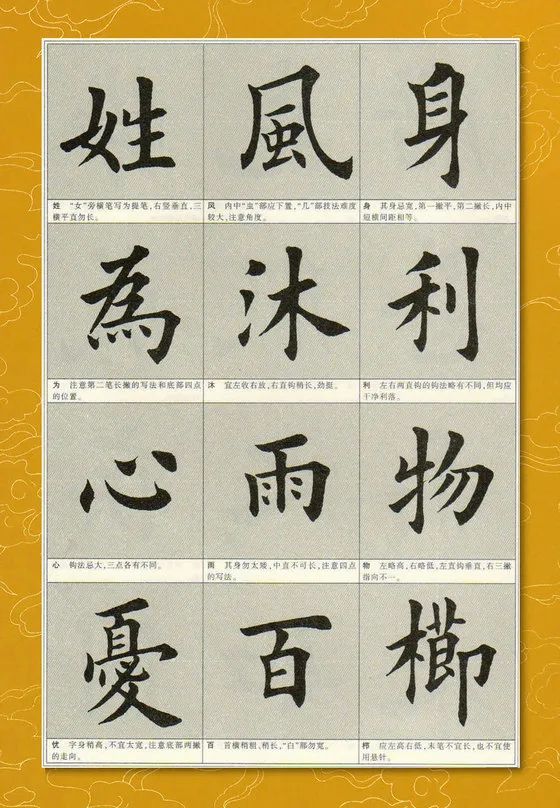 身
身 其身忌宽,第一撇平,第二撇长,内中
短横间距相等。
利
利 左右两直钩的钩法略有不同,但均应
干净利落。
物
物 左略高,右略低,左直钩垂直,右三撇
指向不一。
櫛
栉 应左高右低,末笔不宜长,也不宜使
用悬针。
風
风 内中“虫”部应下置,“几”部技法难度
较大,注意角度。
沐
沐 宜左收右放,右直钩稍长,劲挺。
雨
雨 其身勿太矮,中直不可长,注意四点
的写法。
百
百 首横稍粗、稍长,“白”部勿宽。
姓
姓 “女”旁横笔写为提笔,右竖垂直,三
横平直勿长。
為
为 注意第二笔长撇的写法和底部四点
的位置。
心
心 钩法忌大,三点各有不同。
憂
忧 字身稍高,不宜太宽,注意底部两撇
的走向。